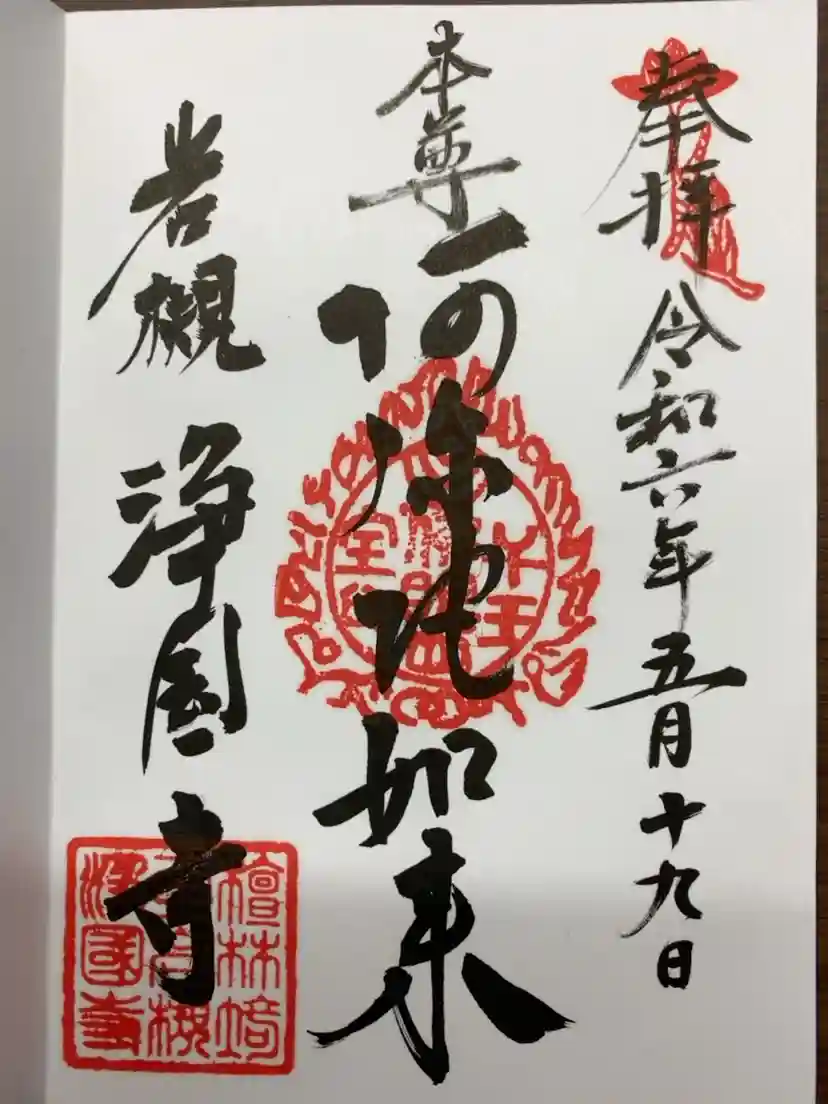 奉拝 令和六年五月十九日
本尊 阿弥陀如来
岩槻 浄国寺
檀林埼
玉岩槻
浄國寺